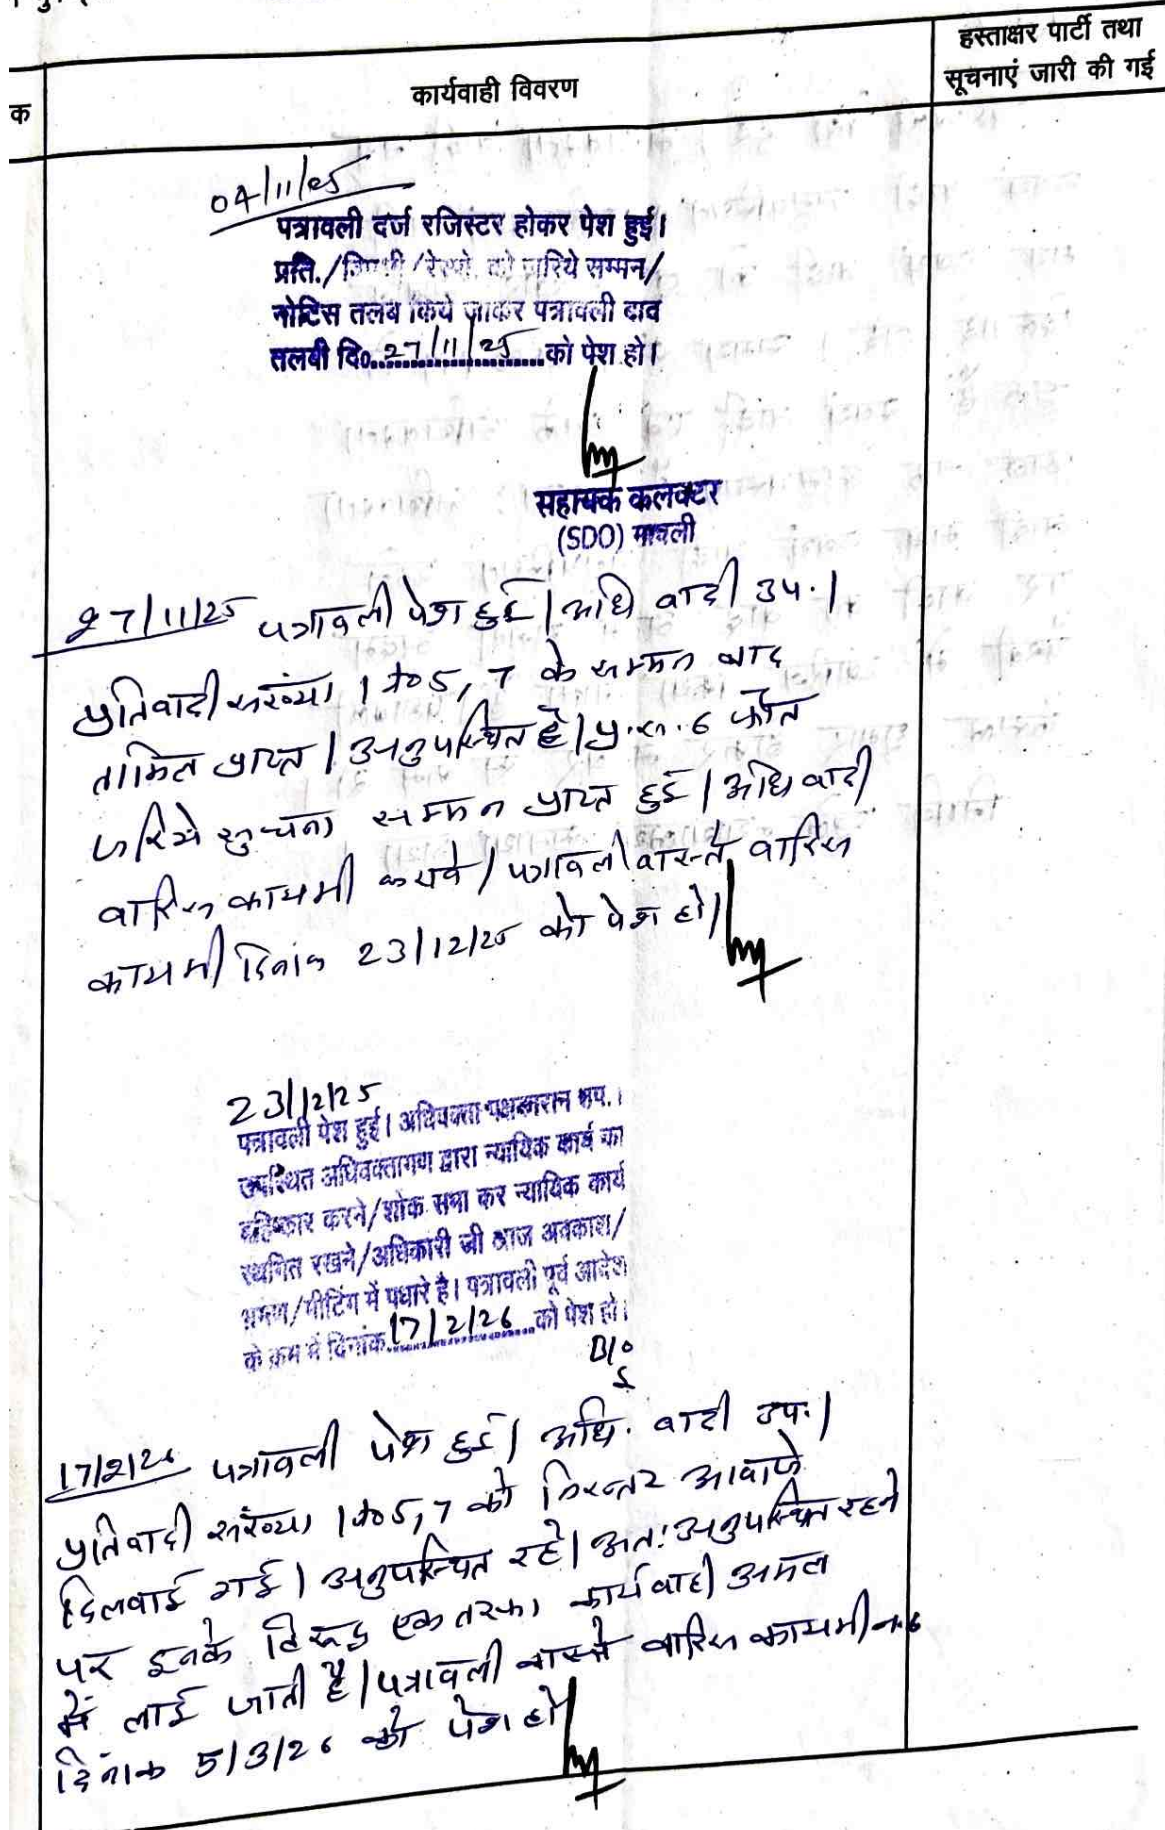 हस्ताक्षर पार्टी तथा
सूचनाएं जारी की गई
क
कार्यवाही विवरण
04/11/25
पत्रावली दर्ज रजिस्टर होकर पेश हुई।
प्रति./विपक्षी/रेस्पो. को जरिये सम्मन/
नोटिस तलब किये जाकर पत्रावली बाद
तलबी दि० 27/11/25 को पेश हो।
सहायक कलक्टर
(SDO) मावली
27/11/25 पत्रावली पेश हुई। अधि वादी उप.।
प्रतिवादी संख्या 1 to 5, 7 के सम्मन बाद
तामिल प्राप्त। अनुपस्थित है। प्र.सं. 6 फौत
जरिये सुचना सम्मन प्राप्त हुई। अधि वादी
वारिस कायमी करावे। पत्रावली वास्ते वारिस
कायमी दिनांक 23/12/25 को पेश हो।
23/12/25
पत्रावली पेश हुई। अधिवक्ता पक्षकारान उप.।
उपस्थित अधिवक्तागण द्वारा न्यायिक कार्य का
बहिष्कार करने/शोक सभा कर न्यायिक कार्य
स्थगित रखने/अधिकारी जी आज अवकाश/
भ्रमण/मीटिंग में पधारे है। पत्रावली पूर्व आदेश
के क्रम में दिनांक 17/2/26 को पेश हो।
17/2/26 पत्रावली पेश हुई। अधि. वादी उप.।
प्रतिवादी संख्या 1 to 5, 7 को निरन्तर आवाजे
दिलवाई गई। अनुपस्थित रहे। अत: अनुपस्थित रहने
पर इनके विरूद्ध एक तरफा कार्यवाही अमल
में लाई जाती है। पत्रावली वास्ते वारिस कायमी 6
दिनांक 5/3/26 को पेश हो।